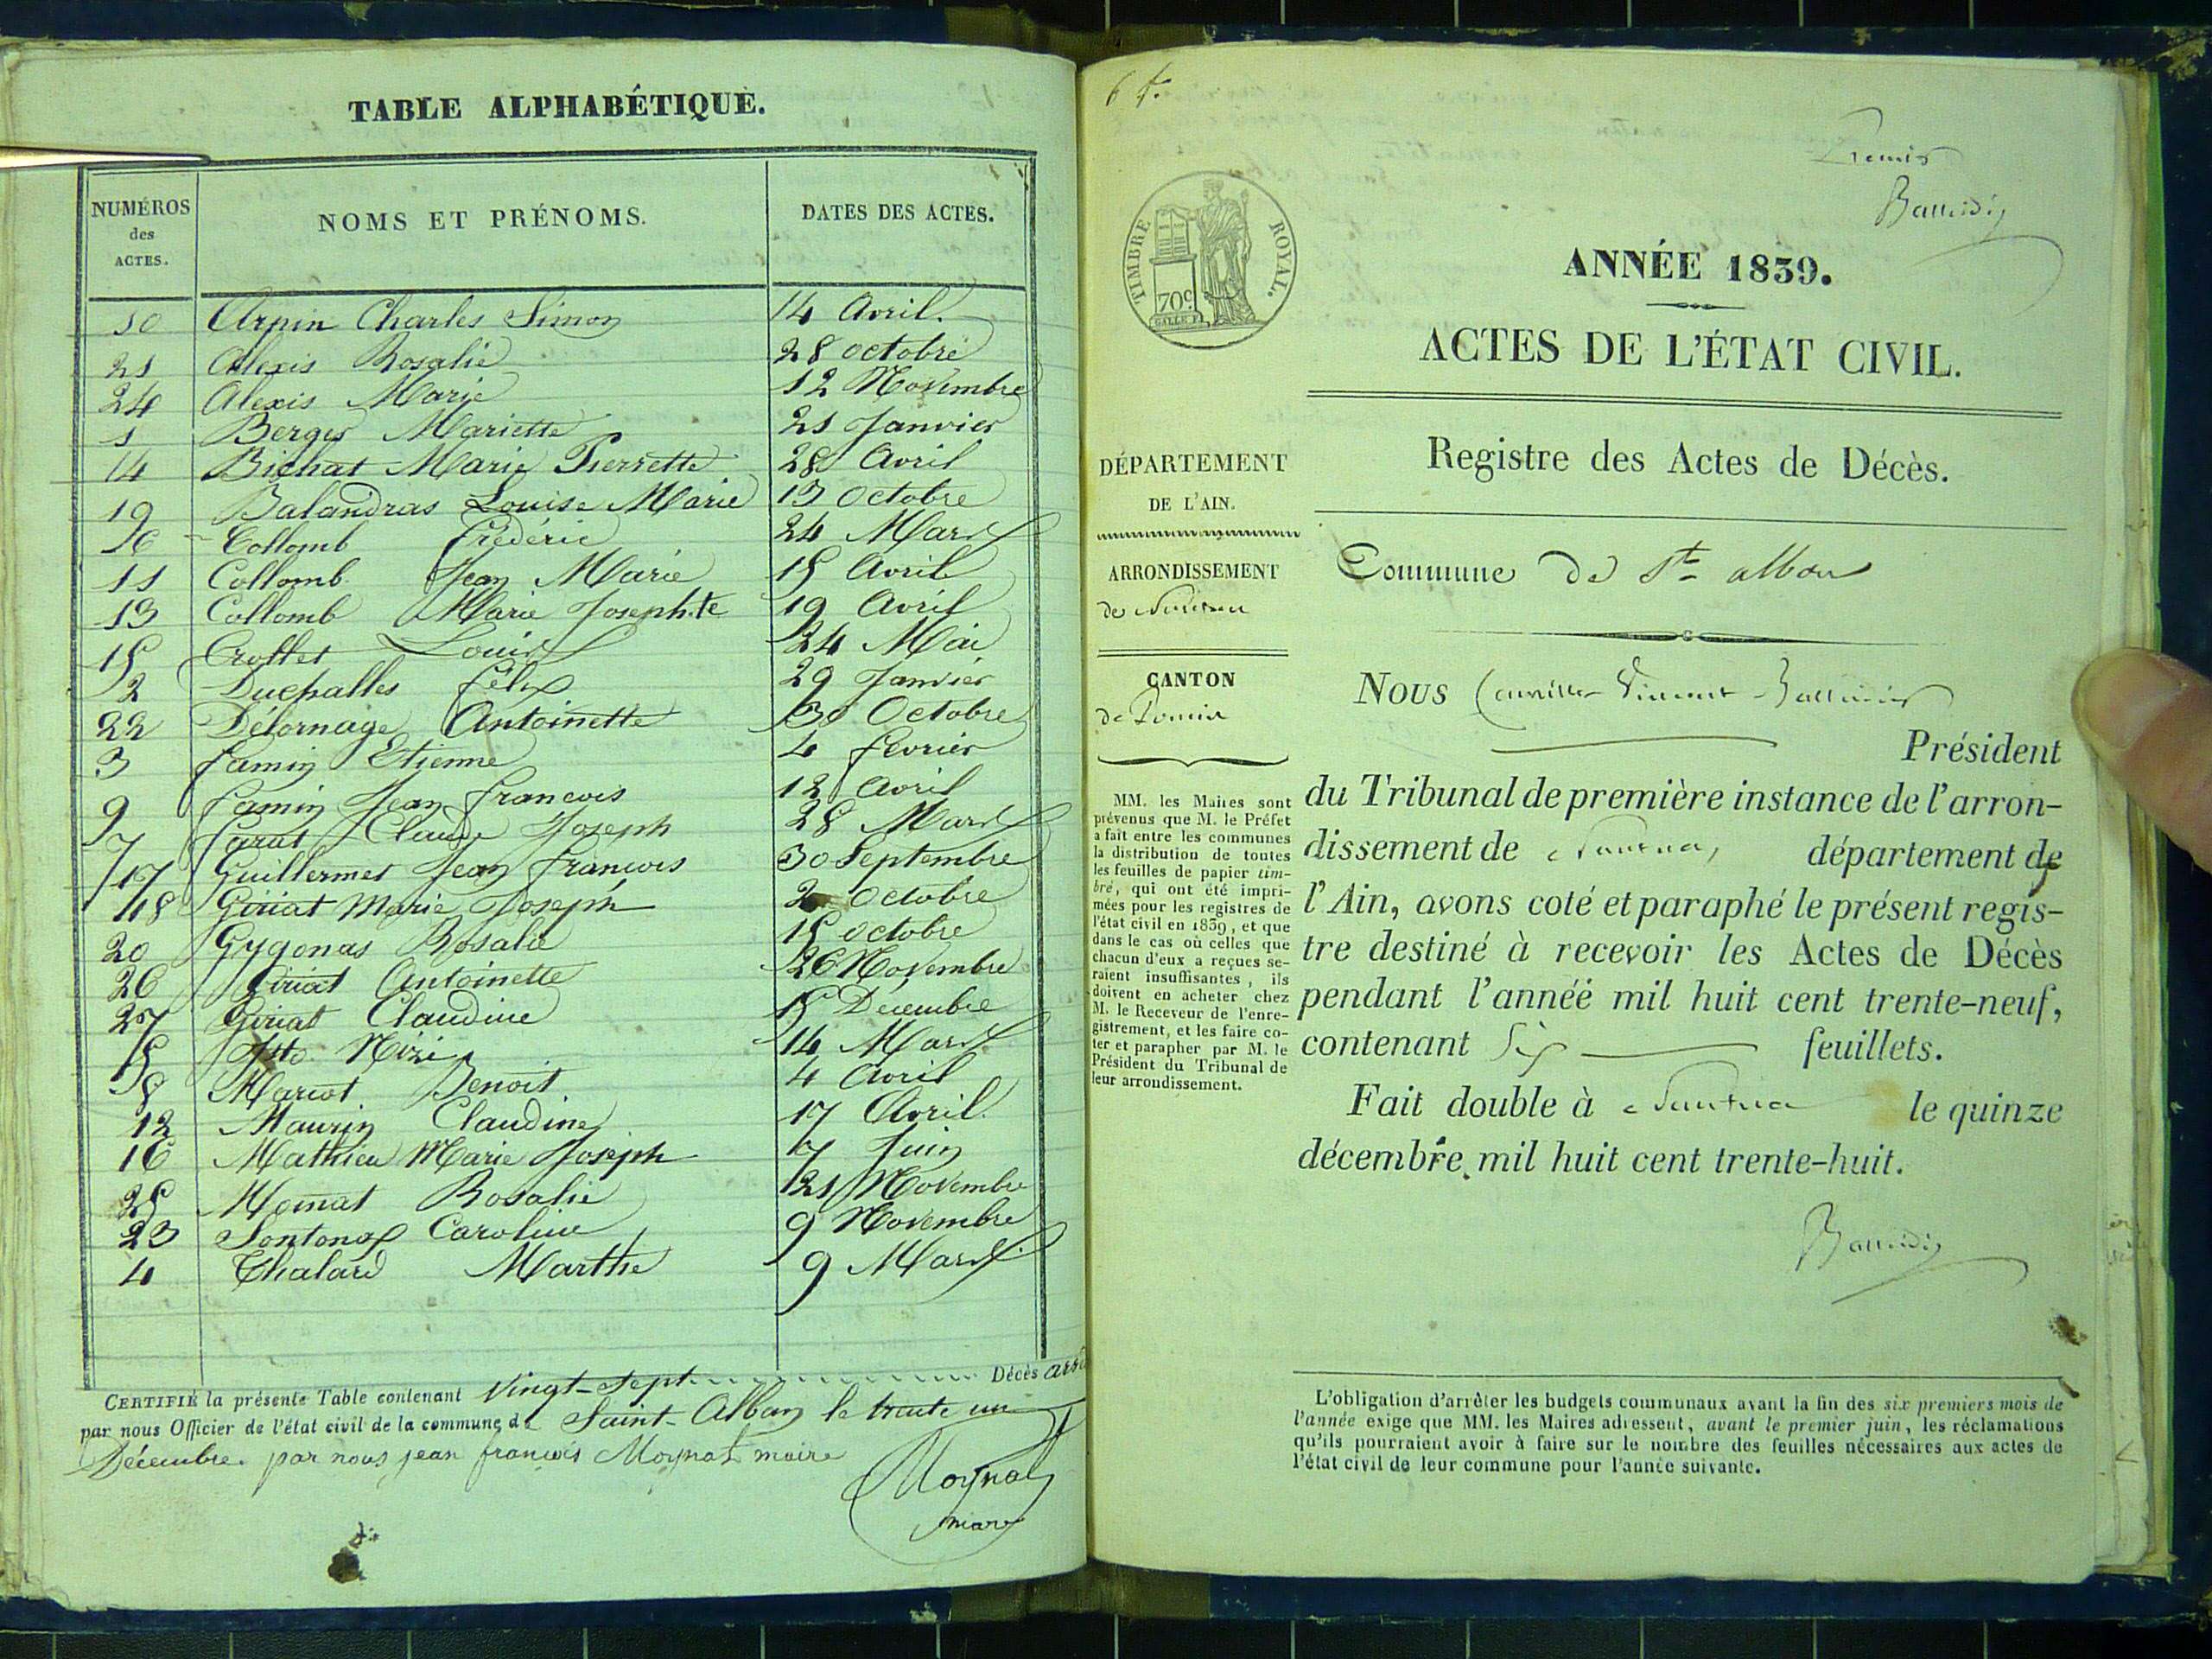 TABLE ALPHABÉTIQUE.
NUMÉROS des ACTES. NOMS ET PRÉNOMS. DATES DES ACTES.
10 Arpin Charles Simon 14 Avril.
21 Alexis Rosalie 28 octobre
24 Alexis Marie 12 Novembre
1 Berger Mariette 21 Janvier
14 Bichat Marie Pierrette 28 Avril
19 Balandras Louise Marie 13 Octobre
6 Collomb Frédéric 24 Mars
11 Collomb Jean Marie 15 Avril
13 Collomb Marie Josephte 19 Avril
15 Crollet Louis 24 Mai
2 Duchalles Félix 29 Janvier
22 Délornage Antoinette 30 Octobre
3 famin Etienne 4 février
9 famin Jean françois 12 Avril
7 farat Claude Joseph 28 Mars
17 Guillermet Jean françois 30 Septembre
18 Giriat Marie Joseph 2 Octobre
20 Gygonas Rosalie 15 octobre
26 Giriat Antoinette 26 Novembre
27 Giriat Claudine 15 Décembre
5 14 Mars
8 Mariot Benoit 4 Avril
12 Maurin Claudine 17 Avril.
16 Mathieu Marie Joseph 7 Juin
25 Rosalie 21 Novembre
23 Sontonax Caroline 9 Novembre
4 Chalard Marthe 9 Mars
CERTIFIÉ la présente Table contenant Vingt-Sept Décès
par nous Officier de l'état civil de la commune de Saint-Alban le trente un
Décembre. par nous jean françois Moynat maire
Moynat
maire
6 f.
Premier
TIMBRE ROYAL.
70c
ANNÉE 1839.
ACTES DE L'ÉTAT CIVIL.
Registre des Actes de Décès.
DÉPARTEMENT
DE L'AIN.
ARRONDISSEMENT
de Nantua
CANTON
de Poncin
MM. les Maires sont
prévenus que M. le Préfet
a fait entre les communes
la distribution de toutes
les feuilles de papier tim-
bré, qui ont été impri-
mées pour les registres de
l'état civil en 1839, et que
dans le cas où celles que
chacun d'eux a reçues se-
raient insuffisantes, ils
doivent en acheter chez
M. le Receveur de l'enre-
gistrement, et les faire co-
ter et parapher par M. le
Président du Tribunal de
leur arrondissement.
Commune de St alban
Nous Vincent
Président
du Tribunal de première instance de l'arron-
dissement de Nantua, département de
l'Ain, avons coté et paraphé le présent regis-
tre destiné à recevoir les Actes de Décès
pendant l'annéé mil huit cent trente-neuf,
contenant Six feuillets.
Fait double à Nantua le quinze
décembre mil huit cent trente-huit.
L'obligation d'arrêter les budgets communaux avant la fin des six premiers mois de
l'année exige que MM. les Maires adressent, avant le premier juin, les réclamations
qu'ils pourraient avoir à faire sur le nombre des feuilles nécessaires aux actes de
l'état civil de leur commune pour l'année suivante.